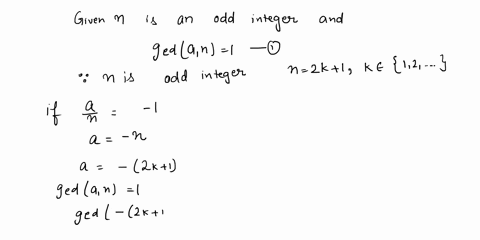 Given n is an odd integer and
ged(a,n)=1 —①
∵ n is odd integer n=2k+1, k∈{1,2,...}
if a/n = -1
a = -n
a = -(2k+1)
ged(a,n) =1
ged(-(2k+1